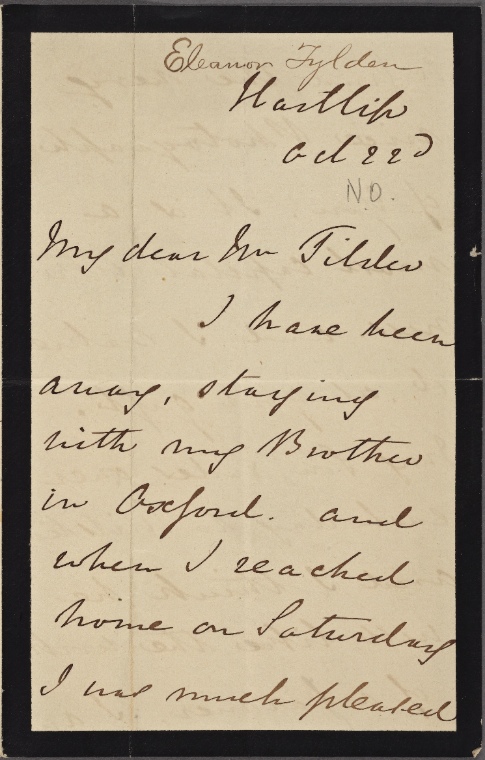 Eleanor Tylden
Hartlip
Oct 22d
N.D.
My dear Mr Tilden
I have been
away, staying
with my Brother
in Oxford. and
when I reached
home on Saturday
I was much pleased